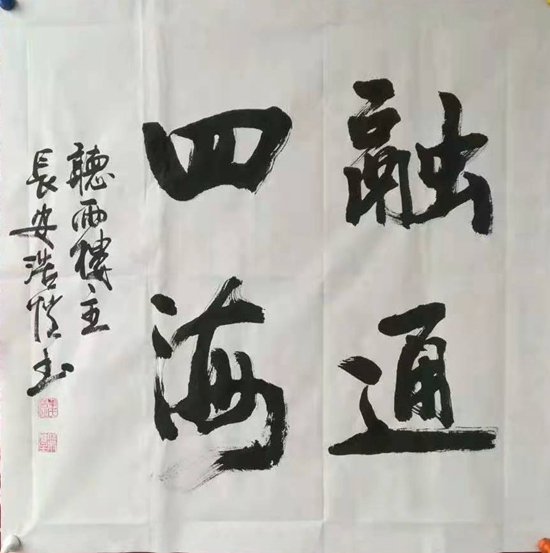 融通
四海
聽雨樓主
長安浩哲書